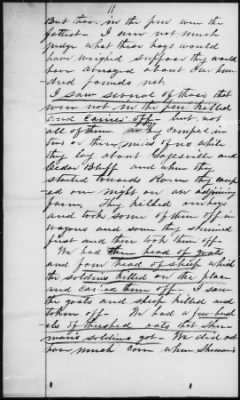 11
But those in the pen were the
fattest - I am not much
judge what those hogs would
have weighed suppose they would
have averaged about one hun-
dred pounds net
I saw several of those that
were not in the pen killed
and carried off - but not
all of them as they camped in
two or three miles of us while
they lay about Gaylesville and
Cedar Bluff and when they
started towards Rome they camp-
ed one night on an adjoining
farm. They killed our hogs
and took some of them off in
wagons and some they skinned
first and then took them off -
We had three head of goats
and four head of sheep which
the soldiers killed on the place
and carried them off - I saw
the goats and sheep killed and
taken off - We had a few bush-
els of thrashed oats that Sher-
man's soldiers got - We did not
have much corn when Sherman's